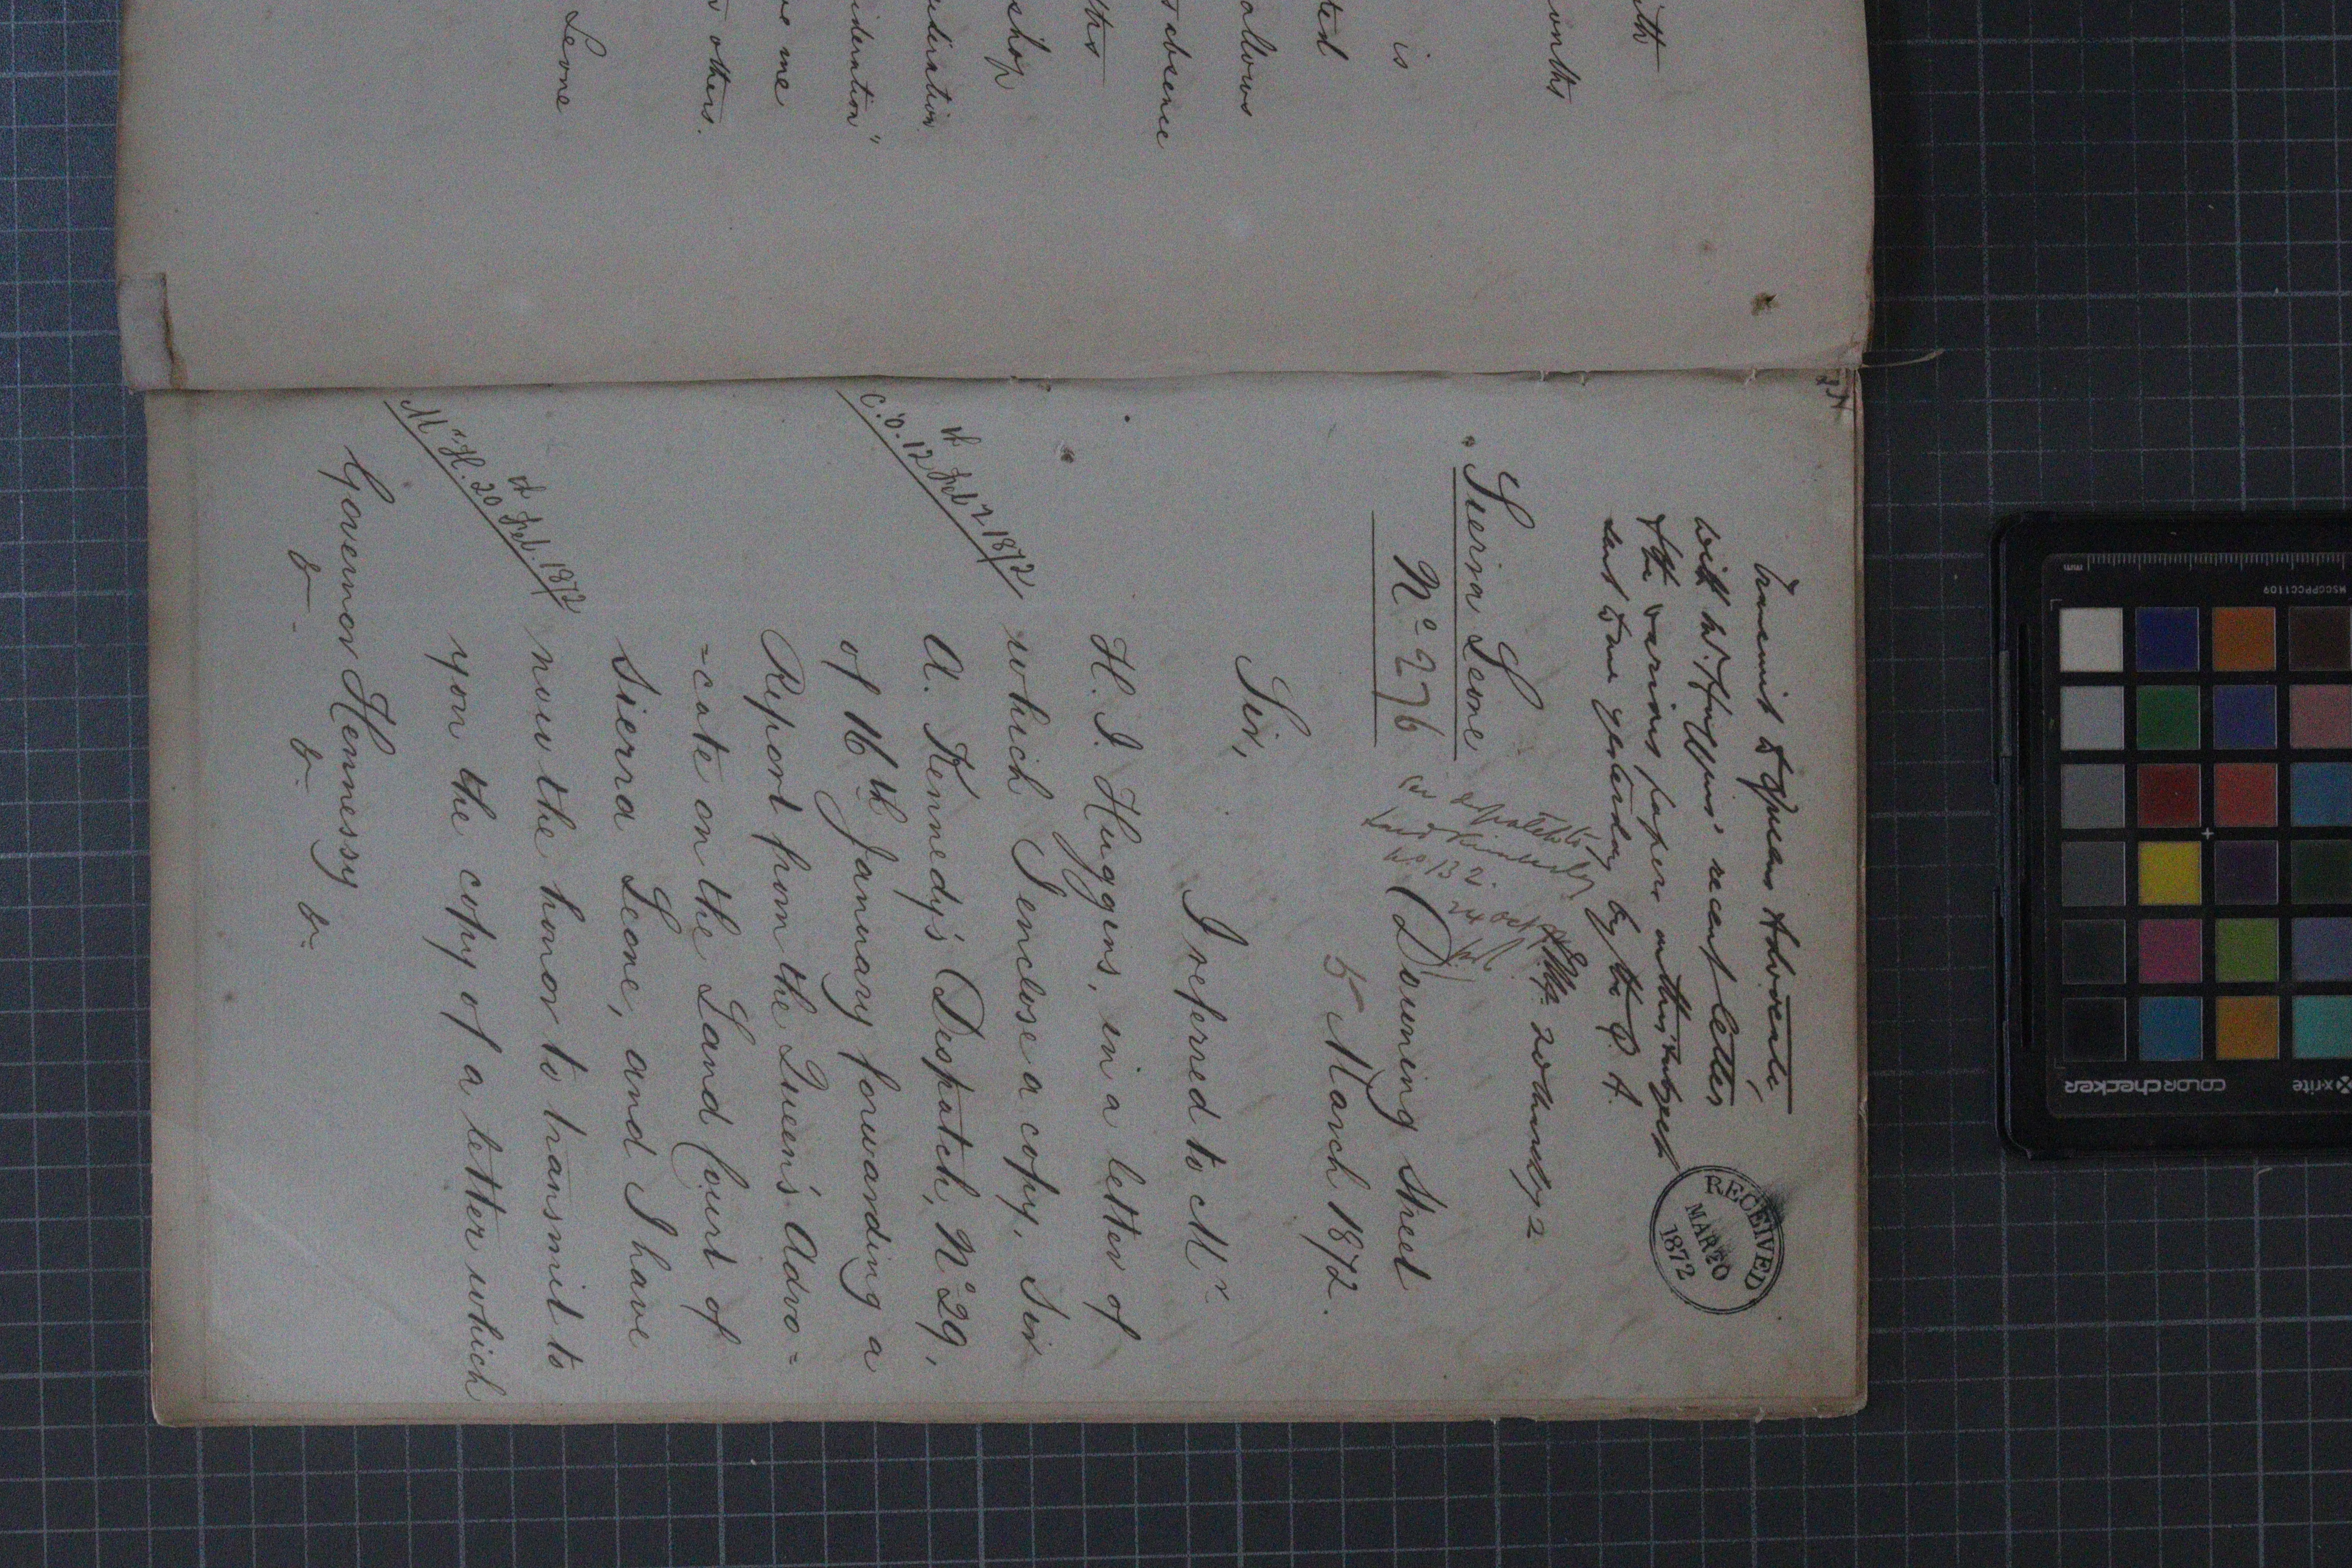 ith
onths
is
ted
ollows
absence
ths
shop
ideration
ideration"
ve me
others.
Leone
Transmit to Queens Advocate,
with Mr. Huggins' recent letter
& the various papers on this subject
sent to me yesterday by the Q. A.
20 March 72
RECEIVED
MAR 20
1872
Sierra Leone
No. 276
See despatch to
Lord Kimberley
No. 132
24 Oct
Downing Street
5 March 1872.
Sir,
I referred to Mr.
H. I. Huggins, in a letter of
C.O. 12th Feby 1872
which I enclose a copy, Sir
A. Kennedy's Despatch, No. 29,
of 16th January forwarding a
Report from the Queen's Advo=
=cate on the Land Court of
Sierra Leone, and I have
Mr. H. 20th Feb. 1872
now the honor to transmit to
you the copy of a letter which
Governor Hennessy
&. &. &.
x-rite
colorchecker
MSCCPPCC1109
mm